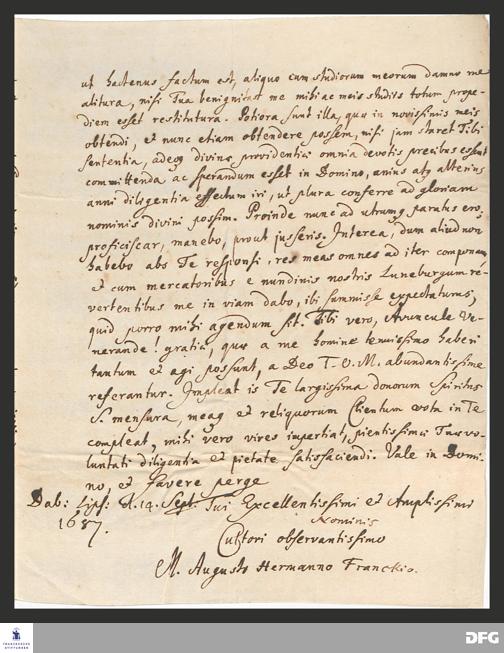 ut hactenus factum est, aliquo cum studiorum meorum damno me
alitura, nisi Tua benignitas me mihi ac meis studiis totum prope-
diem esset restitutura. Potiora sunt illa, quæ in novissimis meis
obtendi, et nunc etiam obtendere possem, nisi jam staret Tibi
sententia, adeoq divinæ providentiæ omnia devotis precibus essent
committenda ac sperandum esset in Domino, unius atq alterius
anni diligentia effectum iri, ut plura conferre ad gloriam
nominis divini possim. Proinde nunc ad utrumq paratus ero,
proficiscar, manebo, prout jusseris. Interea, dum aliud non
habebo abs Te responsi, res meas omnes ad iter componam,
et cum mercatoribus e nundinis nostris Luneburgum re-
vertentibus me in viam dabo, ibi summisse expectaturus,
quid porro mihi agendum sit. Tibi vero, Avuncule Ve-
nerande! gratiæ, quæ a me homine tenuissimo haberi
tantum et agi possunt, a Deo T. O. M. abundantissime
referantur. Impleat is Te largissima donorum Spiritus
S. mensura, meaq et reliquorum Clientum vota in Te
compleat, mihi vero vires impertiat, pientissimæ Tuæ vo-
luntati diligentia et pietate satisfaciendi. Vale in Domi-
no, et favere perge
Dab: Lips: d. 14. Sept. Tui Excellentissimi et Amplissimi
1687. Nominis
Cultori observantissimo
M. Augusto Hermanno Franckio.
FRANCKESCHE
STIFTUNGEN
DFG